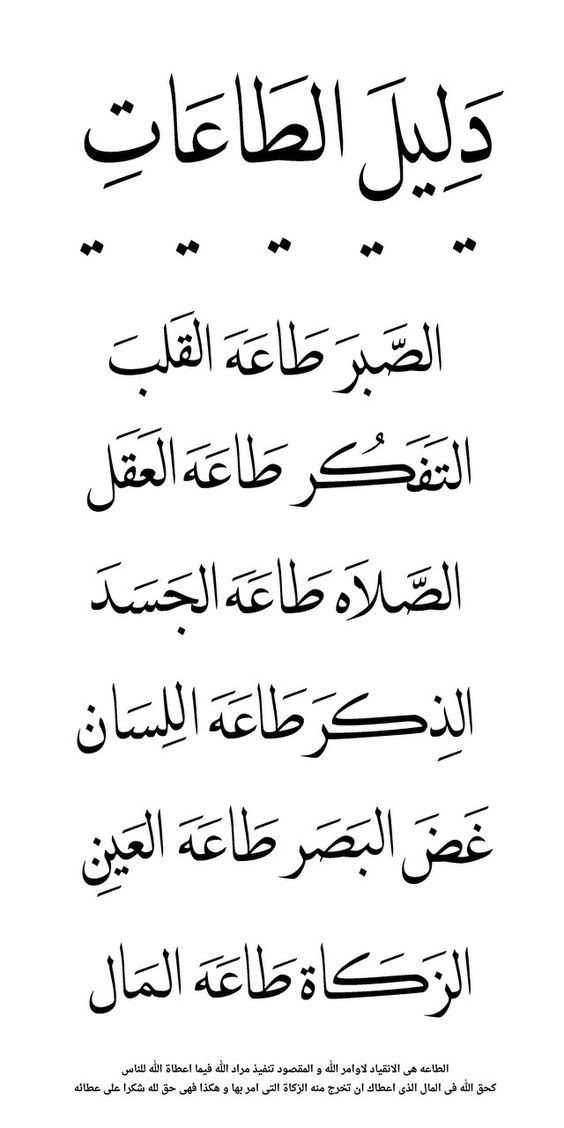 دَلِيلَ الطَاعَاتِ
الصَّبرَ طَاعَهَ القَلبَ
التَفَكُر طَاعَهَ العَقَل
الصَّلاَه طَاعَهَ الجَسَدَ
الذِكرَ طَاعَهَ اللِسَان
غَضَ البَصَر طَاعَهَ العَينِ
الزَكَاة طَاعَهَ المَال
الطاعه هى الانقياد لاوامر الله و المقصود تنفيذ مراد الله فيما اعطاة الله للناس
كحق الله فى المال الذى اعطاك ان تخرج منه الزكاة التى امر بها و هكذا فهى حق لله شكرا على عطائه